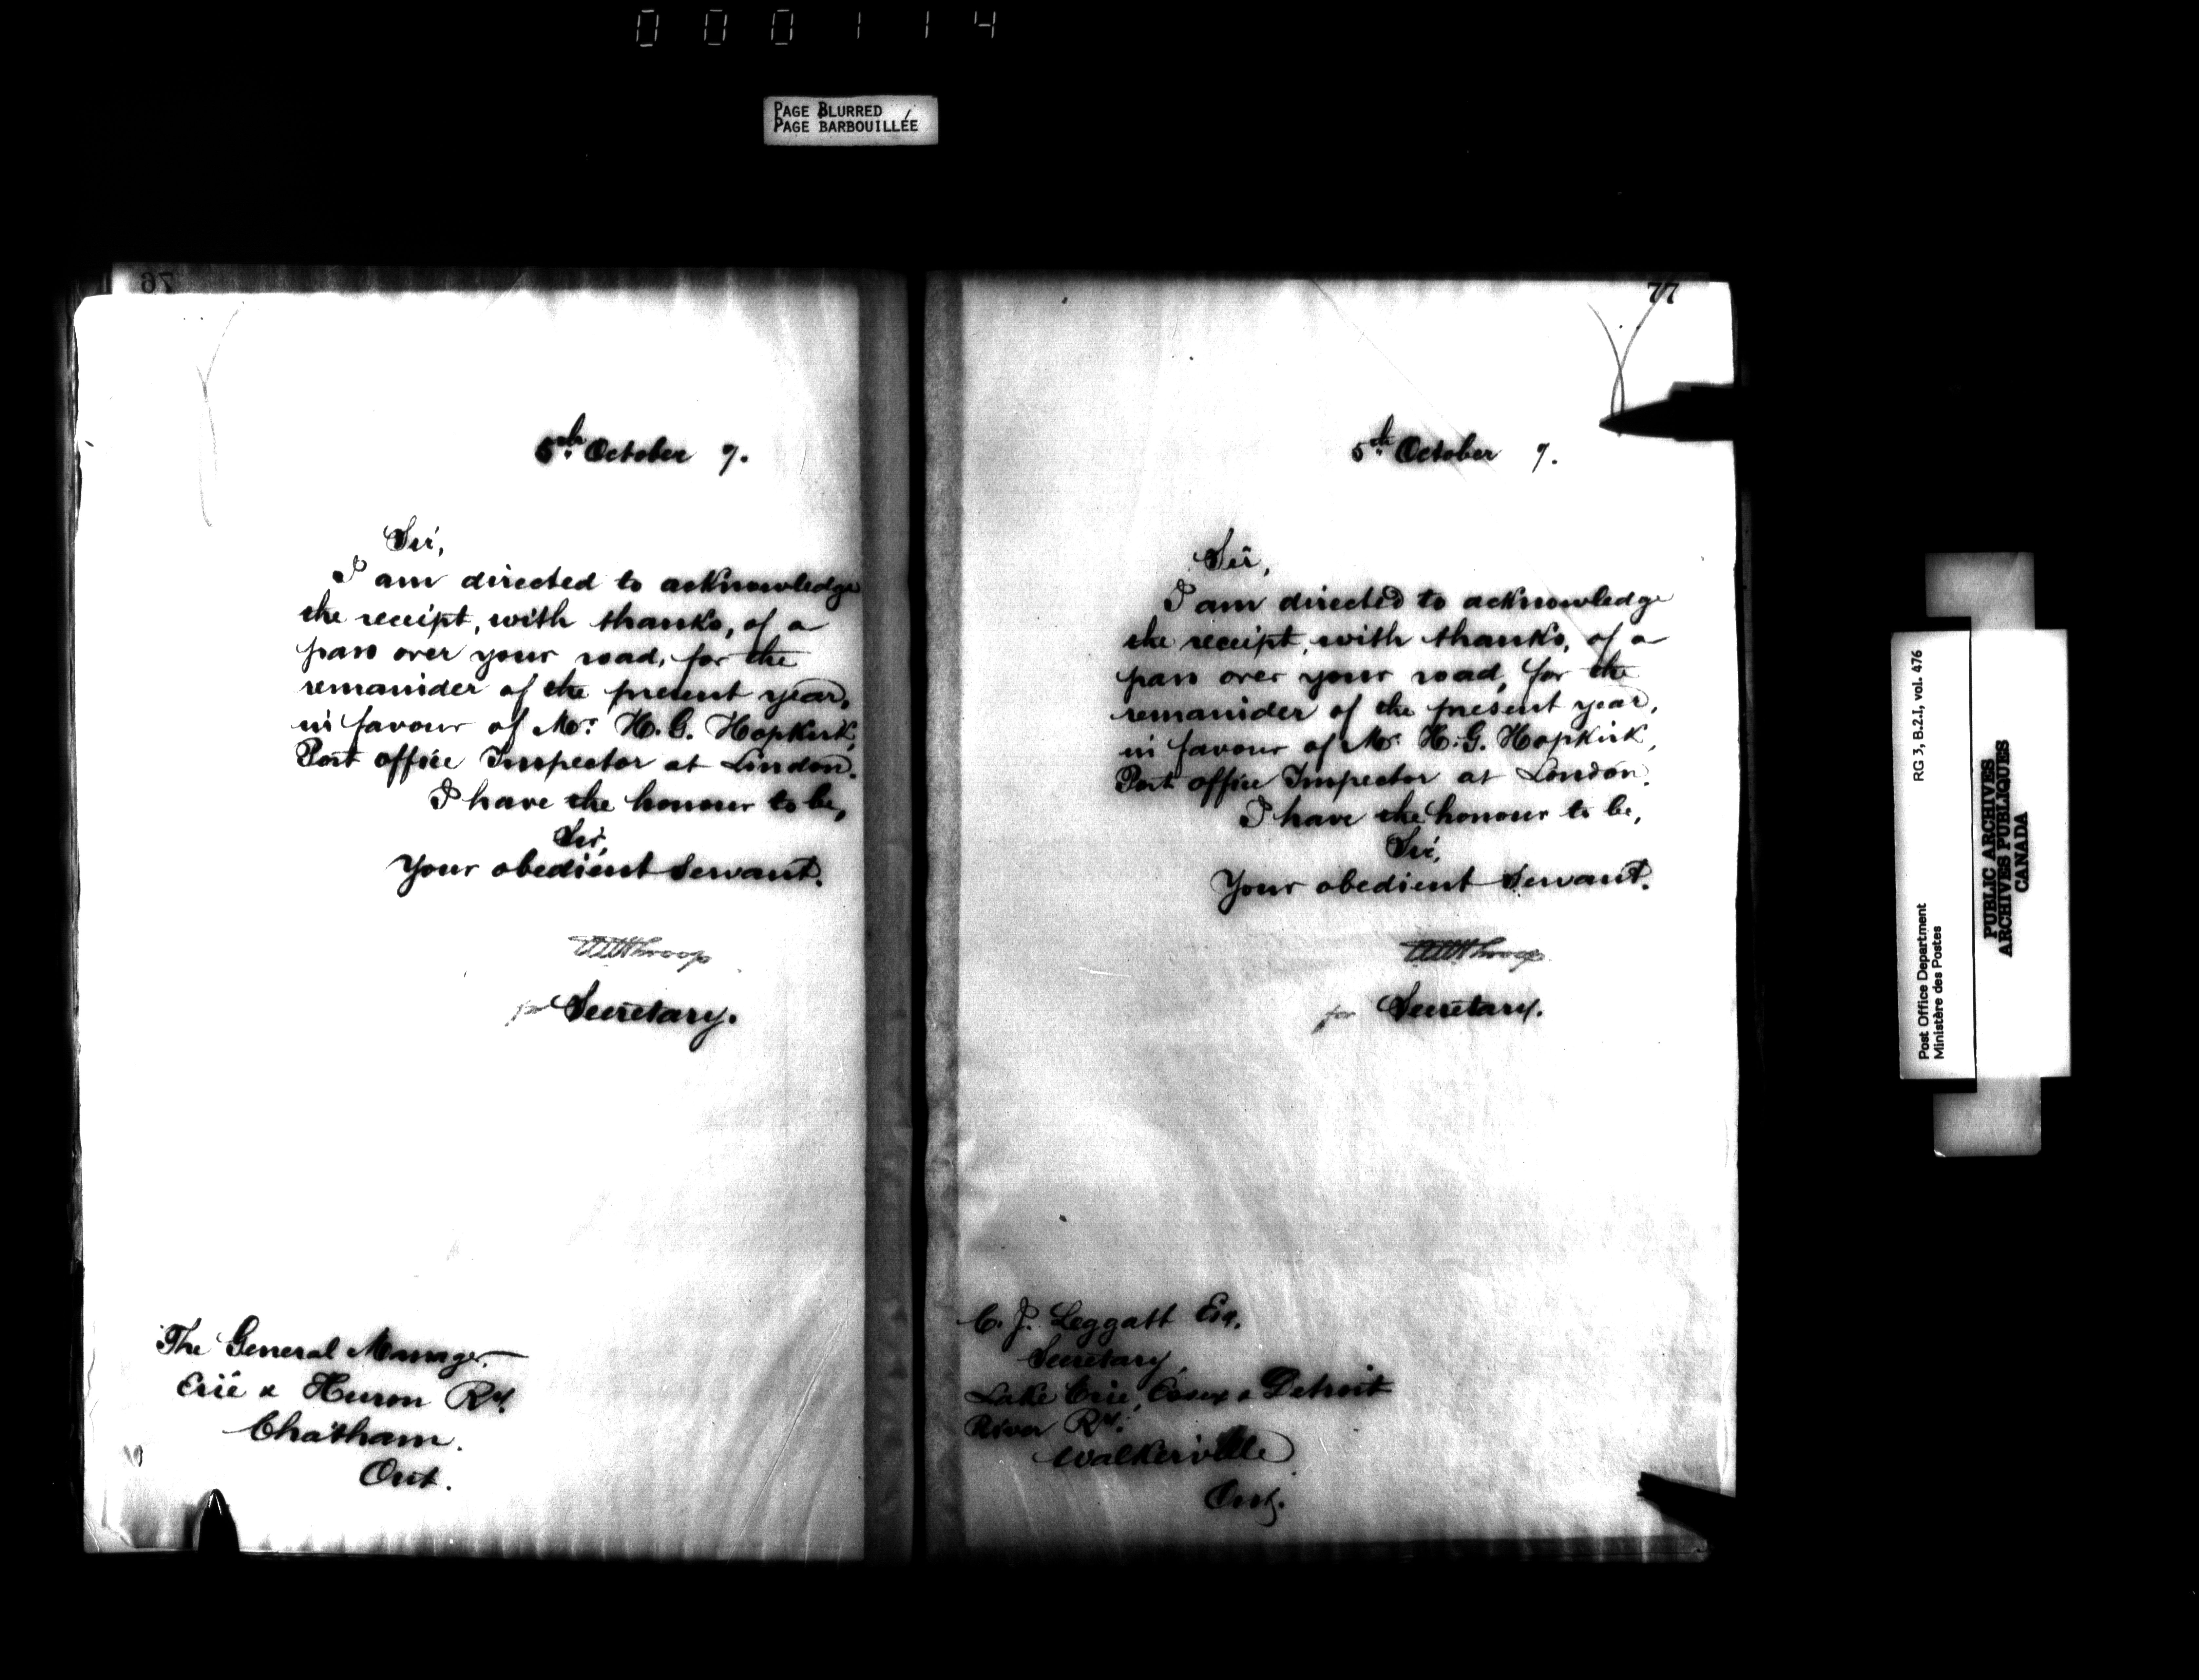 000114
PAGE BLURRED
PAGE BARBOUILLÉE
76
5th October 7.
Sir,
I am directed to acknowledge
the receipt, with thanks, of a
pass over your road, for the
remainder of the present year,
in favour of Mr. H. G. Hopkirk,
Post office Inspector at London.
I have the honour to be,
Sir,
Your obedient Servant.
for Secretary.
The General Manager
Erie & Huron Ry.
Chatham.
Ont.
77
5th October 7.
Sir,
I am directed to acknowledge
the receipt, with thanks, of a
pass over your road, for the
remainder of the present year,
in favour of Mr. H. G. Hopkirk,
Post office Inspector at London.
I have the honour to be,
Sir,
Your obedient Servant.
for Secretary.
C. J. Leggatt Esq.
Secretary,
Lake Erie, Essex & Detroit
River Ry.
Walkerville
Ont.
RG 3, B.2.I, vol. 476
Post Office Department
Ministère des Postes
PUBLIC ARCHIVES
ARCHIVES PUBLIQUES
CANADA